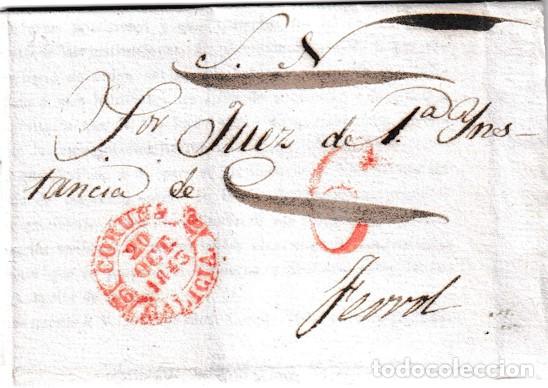 S. N.
Sor Juez de 1.a Yns-
tancia de
6
CORUÑA
20
OCT.
1843
GALICIA
Ferrol
todocoleccion